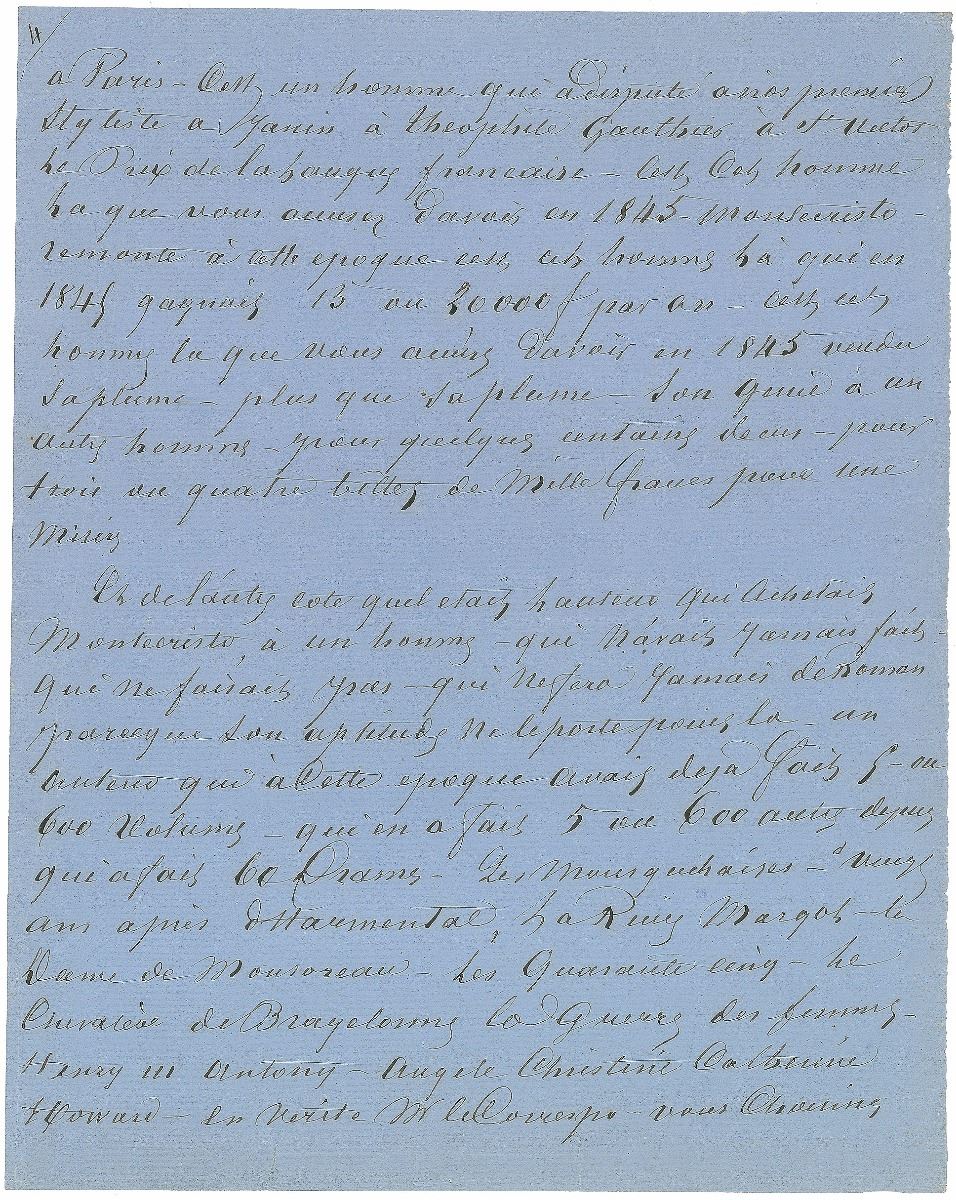 4/
a Paris – Cest un homme qui a disputé a nos premier
Styliste a Janin à Theophile Gauthier à St Victor
Le Prix de la Langue francaise – Cest Cet homme
La que vous accusez d'avoir en 1845 – Montecristo –
remonte à cette epoque cest cet homme Là qui en
1845 gagnait 15 ou 20000 f par an – cest cet
homme la que vous accusez d'avoir en 1845 vendu
Sa plume – plus que Sa plume – Son genie à un
autre homme – pour quelque centaine decus – pour
trois ou quatre billet de Mille francs pour une
Misère
Et de l'autre coté quel etait hauteur qui Achetait
Montecristo à un homme – qui N'avait Jamais fait –
Qui Ne faisait pas – qui Ne fera Jamais de Roman
parceque Son aptitude Ne le porte point la – un
auteur qui à Cette epoque avait deja fait 5 – ou
600 Volumes – qui en a fait 5 ou 600 autre depuis
qui a fait 60 Drames – Les Mousquetaires – Vingt
ans après d'Harmental, La Reine Margot – la
Dame de Monsoreau – Les Quarante cinq – Le
Chevalier de Bragelonne la Guerre des femmes –
Henry III Antony – Angele Christine Catherine
Howard – en verité Mr le Correspo – vous Choisissez